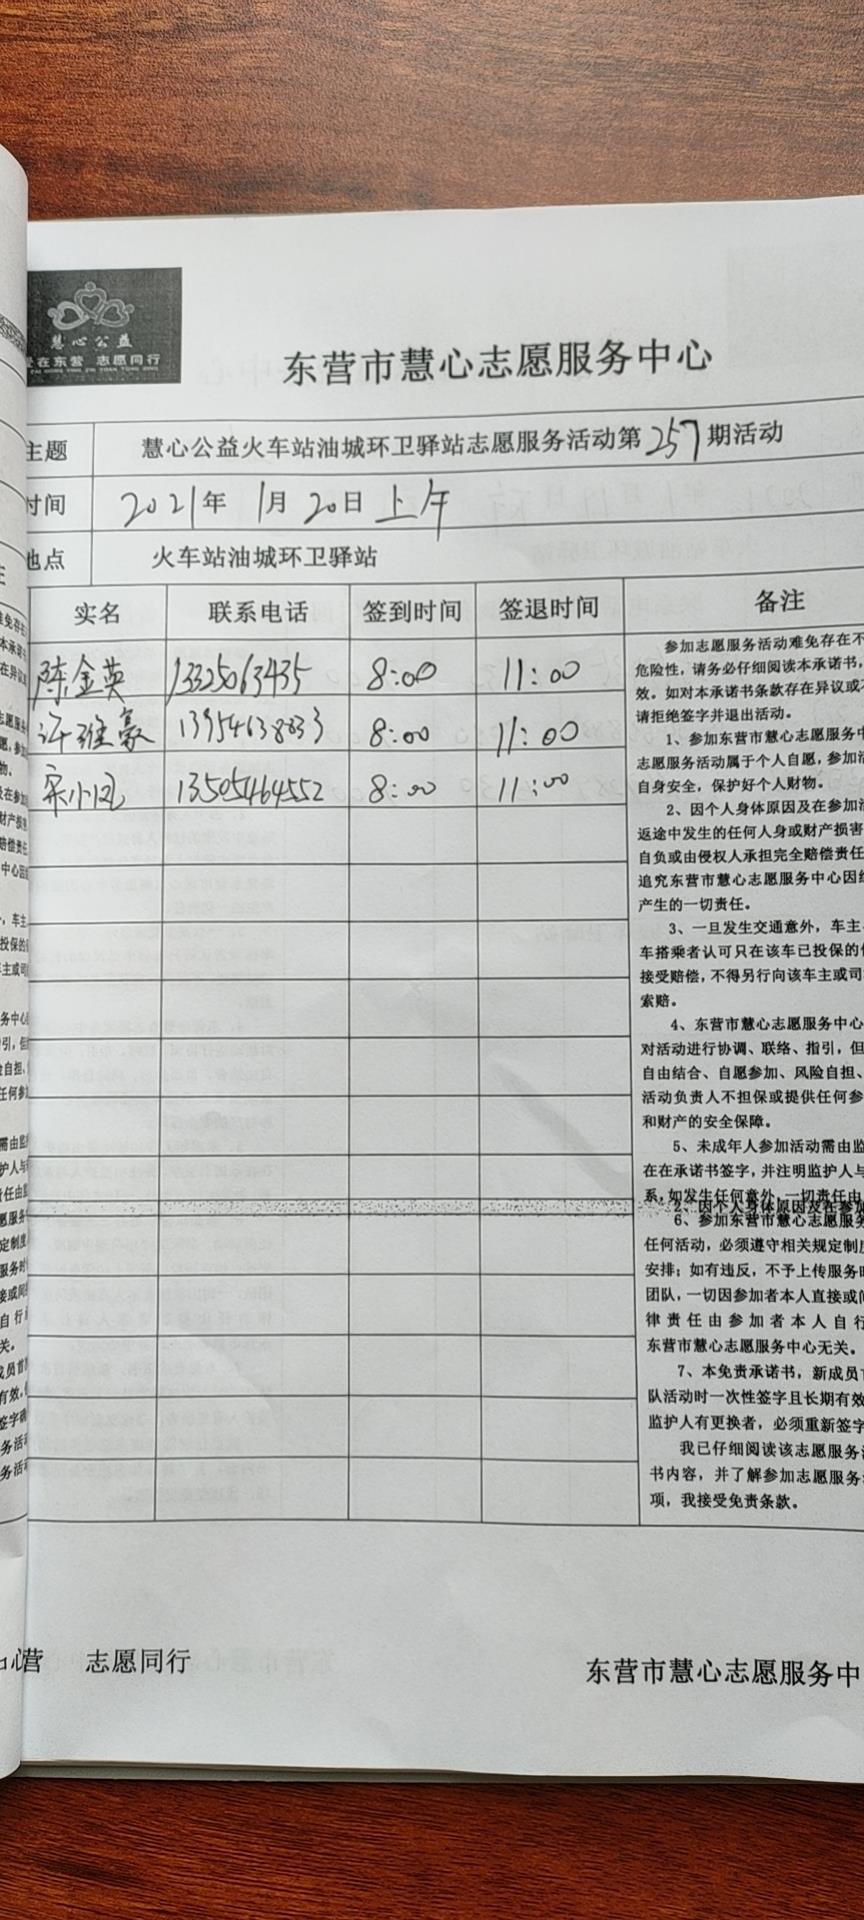 慧心公益
爱在东营 志愿同行
东营市慧心志愿服务中心
主题 慧心公益火车站油城环卫驿站志愿服务活动第257期活动
时间 2021年1月20日上午
地点 火车站油城环卫驿站
实名 联系电话 签到时间 签退时间 备注
陈金英 13325063435 8:00 11:00
许维豪 13954638833 8:00 11:00
宋小凤 13505464552 8:00 11:00
参加志愿服务活动难免存在不
危险性，请务必仔细阅读本承诺书，
效。如对本承诺书条款存在异议或不
请拒绝签字并退出活动。
1、参加东营市慧心志愿服务中
志愿服务活动属于个人自愿，参加活
自身安全，保护好个人财物。
2、因个人身体原因及在参加活
返途中发生的任何人身或财产损害
自负或由侵权人承担完全赔偿责任
追究东营市慧心志愿服务中心因组
产生的一切责任。
3、一旦发生交通意外，车主
车搭乘者认可只在该车已投保的
接受赔偿，不得另行向该车主或司
索赔。
4、东营市慧心志愿服务中心
对活动进行协调、联络、指引，但
自由结合、自愿参加、风险自担、
活动负责人不担保或提供任何参
和财产的安全保障。
5、未成年人参加活动需由监
在在承诺书签字，并注明监护人与
系，如发生任何意外，一切责任由
2、因个人身体原因及在参加
6、参加东营市慧心志愿服务
任何活动，必须遵守相关规定制度
安排；如有违反，不予上传服务时
团队，一切因参加者本人直接或间
律责任由参加者本人自行
东营市慧心志愿服务中心无关。
7、本免责承诺书，新成员首
队活动时一次性签字且长期有效
监护人有更换者，必须重新签字
我已仔细阅读该志愿服务活
书内容，并了解参加志愿服务
项，我接受免责条款。
营 志愿同行
东营市慧心志愿服务中